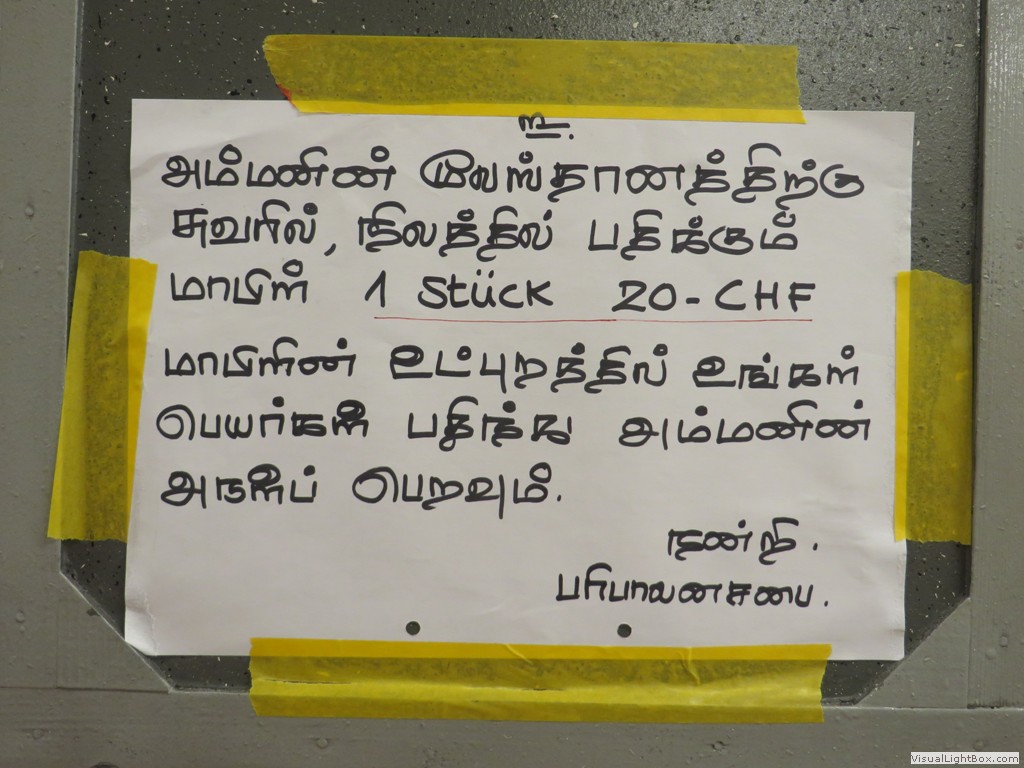 உ.
அம்மனின் மூலஸ்தானத்திற்கு
சுவரில், நிலத்தில் பதிக்கும்
மாபிள் 1 Stück 20-CHF
மாபிளின் உட்புறத்தில் உங்கள்
பெயர்களை பதிந்து அம்மனின்
அருளைப் பெறவும்.
நன்றி.
பரிபாலனசபை.
VisualLightBox.com